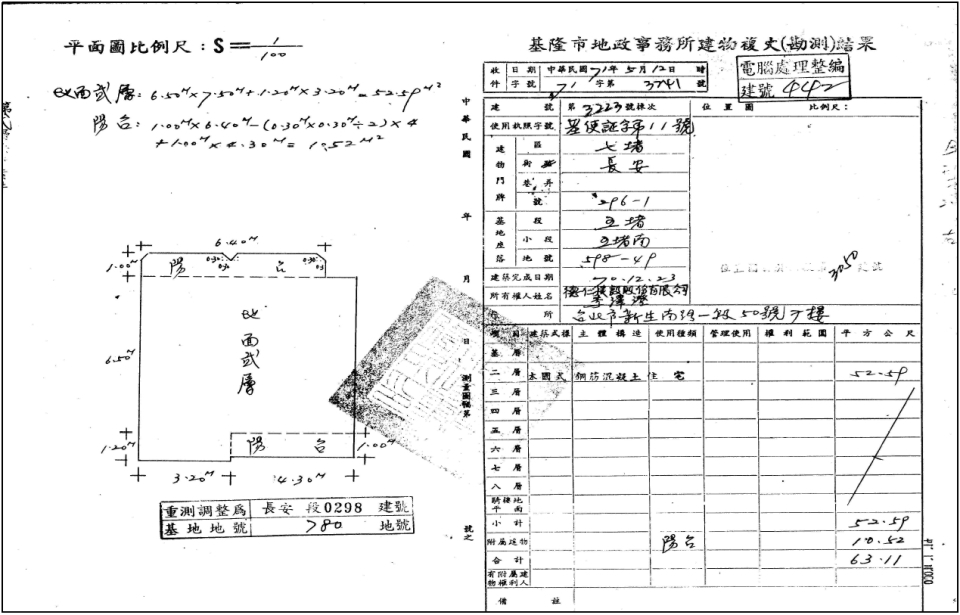 平面圖比例尺：S＝1/100
地面貳層：6.50M×7.50M+1.20M×3.20M=52.59M²
陽台：1.00M×6.40M-(0.30M×0.30M÷2)×4
+1.00M×4.30M=10.52M²
6.40M
1.00M
陽台
0.30
0.30
6.50M
地面貳層
陽台
1.20M
1.00M
3.20M
4.30M
重測調整為 長安 段0298 建號
基地地號 780 地號
中華民國 年 月 日
測量圖幅第 號之
基隆市地政事務所建物複丈(勘測)結果
收件 日期 中華民國71年5月12日 時
字號 71 字第 3741 號
電腦處理整編
建號 442
建號 第3223號棟次
位置圖 比例尺：
使用執照字號 基使証字第11號
建物門牌
區 七堵
街 長安
巷弄
號 296-1
基地座落
段 五堵
小段 五堵南
地號 598-49
3050
建築完成日期 70.12.23
所有權人姓名
台北市新生南路一段50號
項目 建築式樣 主體構造 使用種類 管理使用 權利範圍 平方公尺
基層
二層 本國式 鋼筋混凝土 住宅 52.59
三層
四層
五層
六層
七層
八層
騎樓地平面
小計 52.59
附屬建物 陽台 10.52
合計 63.11
有附屬建物權利人
備註